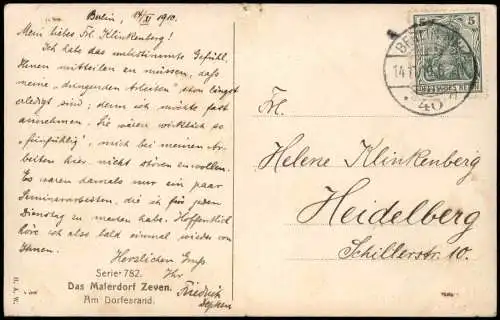 Berlin, 14/XI 1910.
Mein liebes Frl. Klinkenberg!
Ich habe das unbestimmte Gefühl,
Ihnen mitteilen zu müssen, daß
meine „dringenden Arbeiten" schon längst
erledigt sind; denn ich möchte fast
annehmen, Sie wären wirklich so
„feinfühlig", mich bei meinen Ar-
beiten hier nicht stören zu wollen.
Es waren damals nur ein paar
Seminararbeiten, die ich für jeden
Dienstag zu machen habe. Hoffentlich
höre ich also bald einmal wieder von
Ihnen.
Herzlichen Gruß
Ihr
Friedrich
Serie 782.
Das Malerdorf Zeven.
Am Dorfesrand.
H. A. W.
5 5
BERLIN
14.11
40
Frl.
Helene Klinkenberg
Heidelberg
Schillerstr. 10.